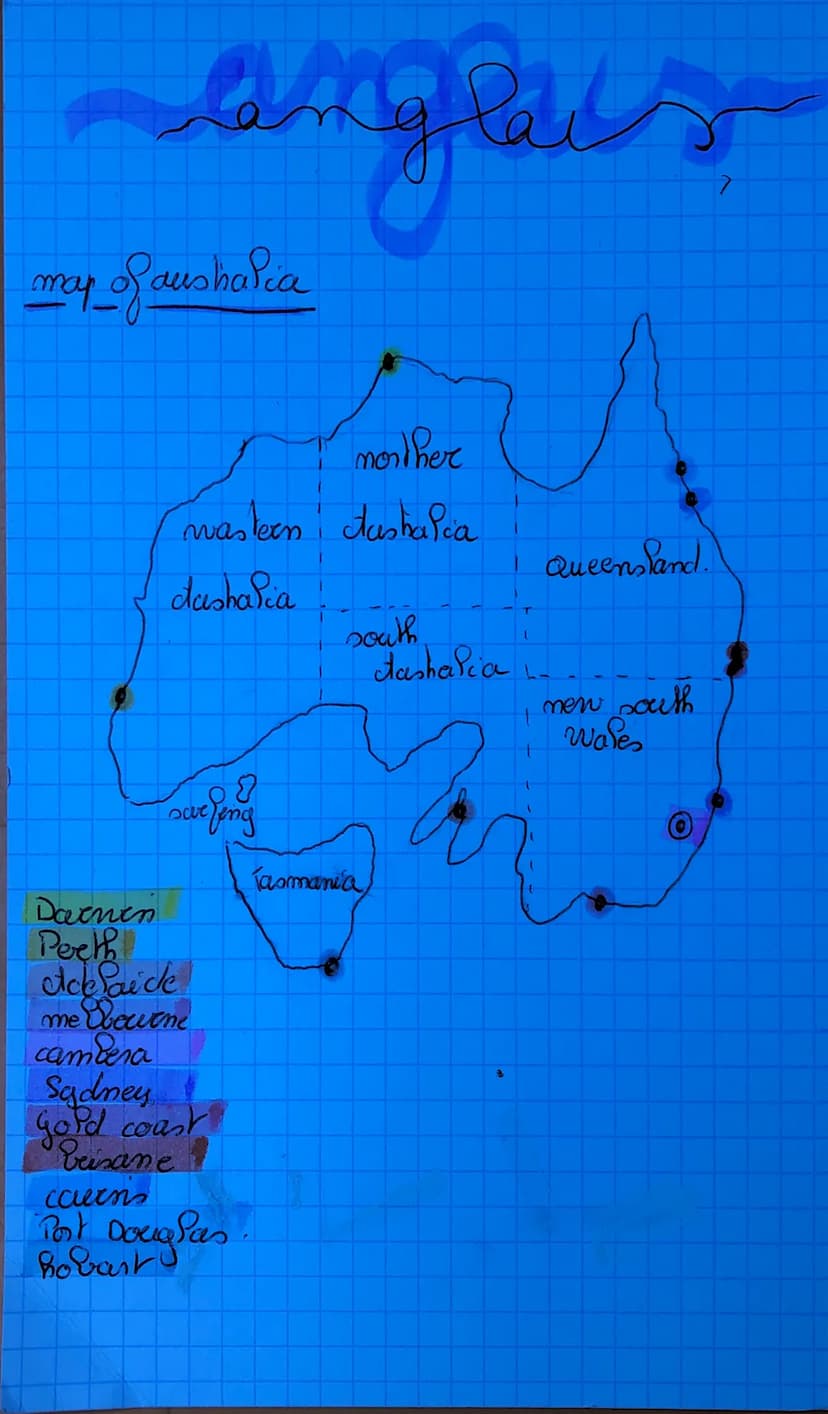 anglais
map of australia
norther
wastern
australia
queensland.
australia
south
australia
new south
Wales
Tasmania
Darwin
Perth
Adelaide
melbourne
cambera
Sydney
Gold coast
brisane
cairns
Port Douglas.
Hobart